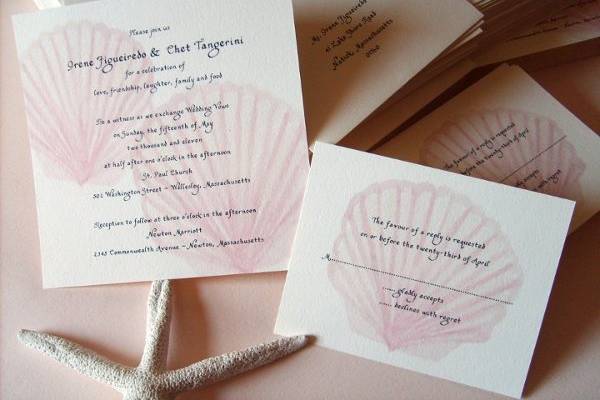 Please join us
Irene Figueiredo & Chet Tangerini
for a celebration of
love, friendship, laughter, family and food
To a witness as we exchange Wedding Vows
on Sunday, the fifteenth of May
two thousand and eleven
at half after one o'clock in the afternoon
St. Paul Church
502 Washington Street ~ Wellesley, Massachusetts
Reception to follow at three o'clock in the afternoon
Newton Marriott
2345 Commonwealth Avenue ~ Newton, Massachusetts
Ms. Irene Figueiredo
41 Lake Shore Road
Natick, Massachusetts
01760
The favour of a reply is requested
on or before the twenty-third of April
M
gladly accepts
declines with regret
The favour of a reply is requested
on or before the twenty-third of April
accepts
with regret